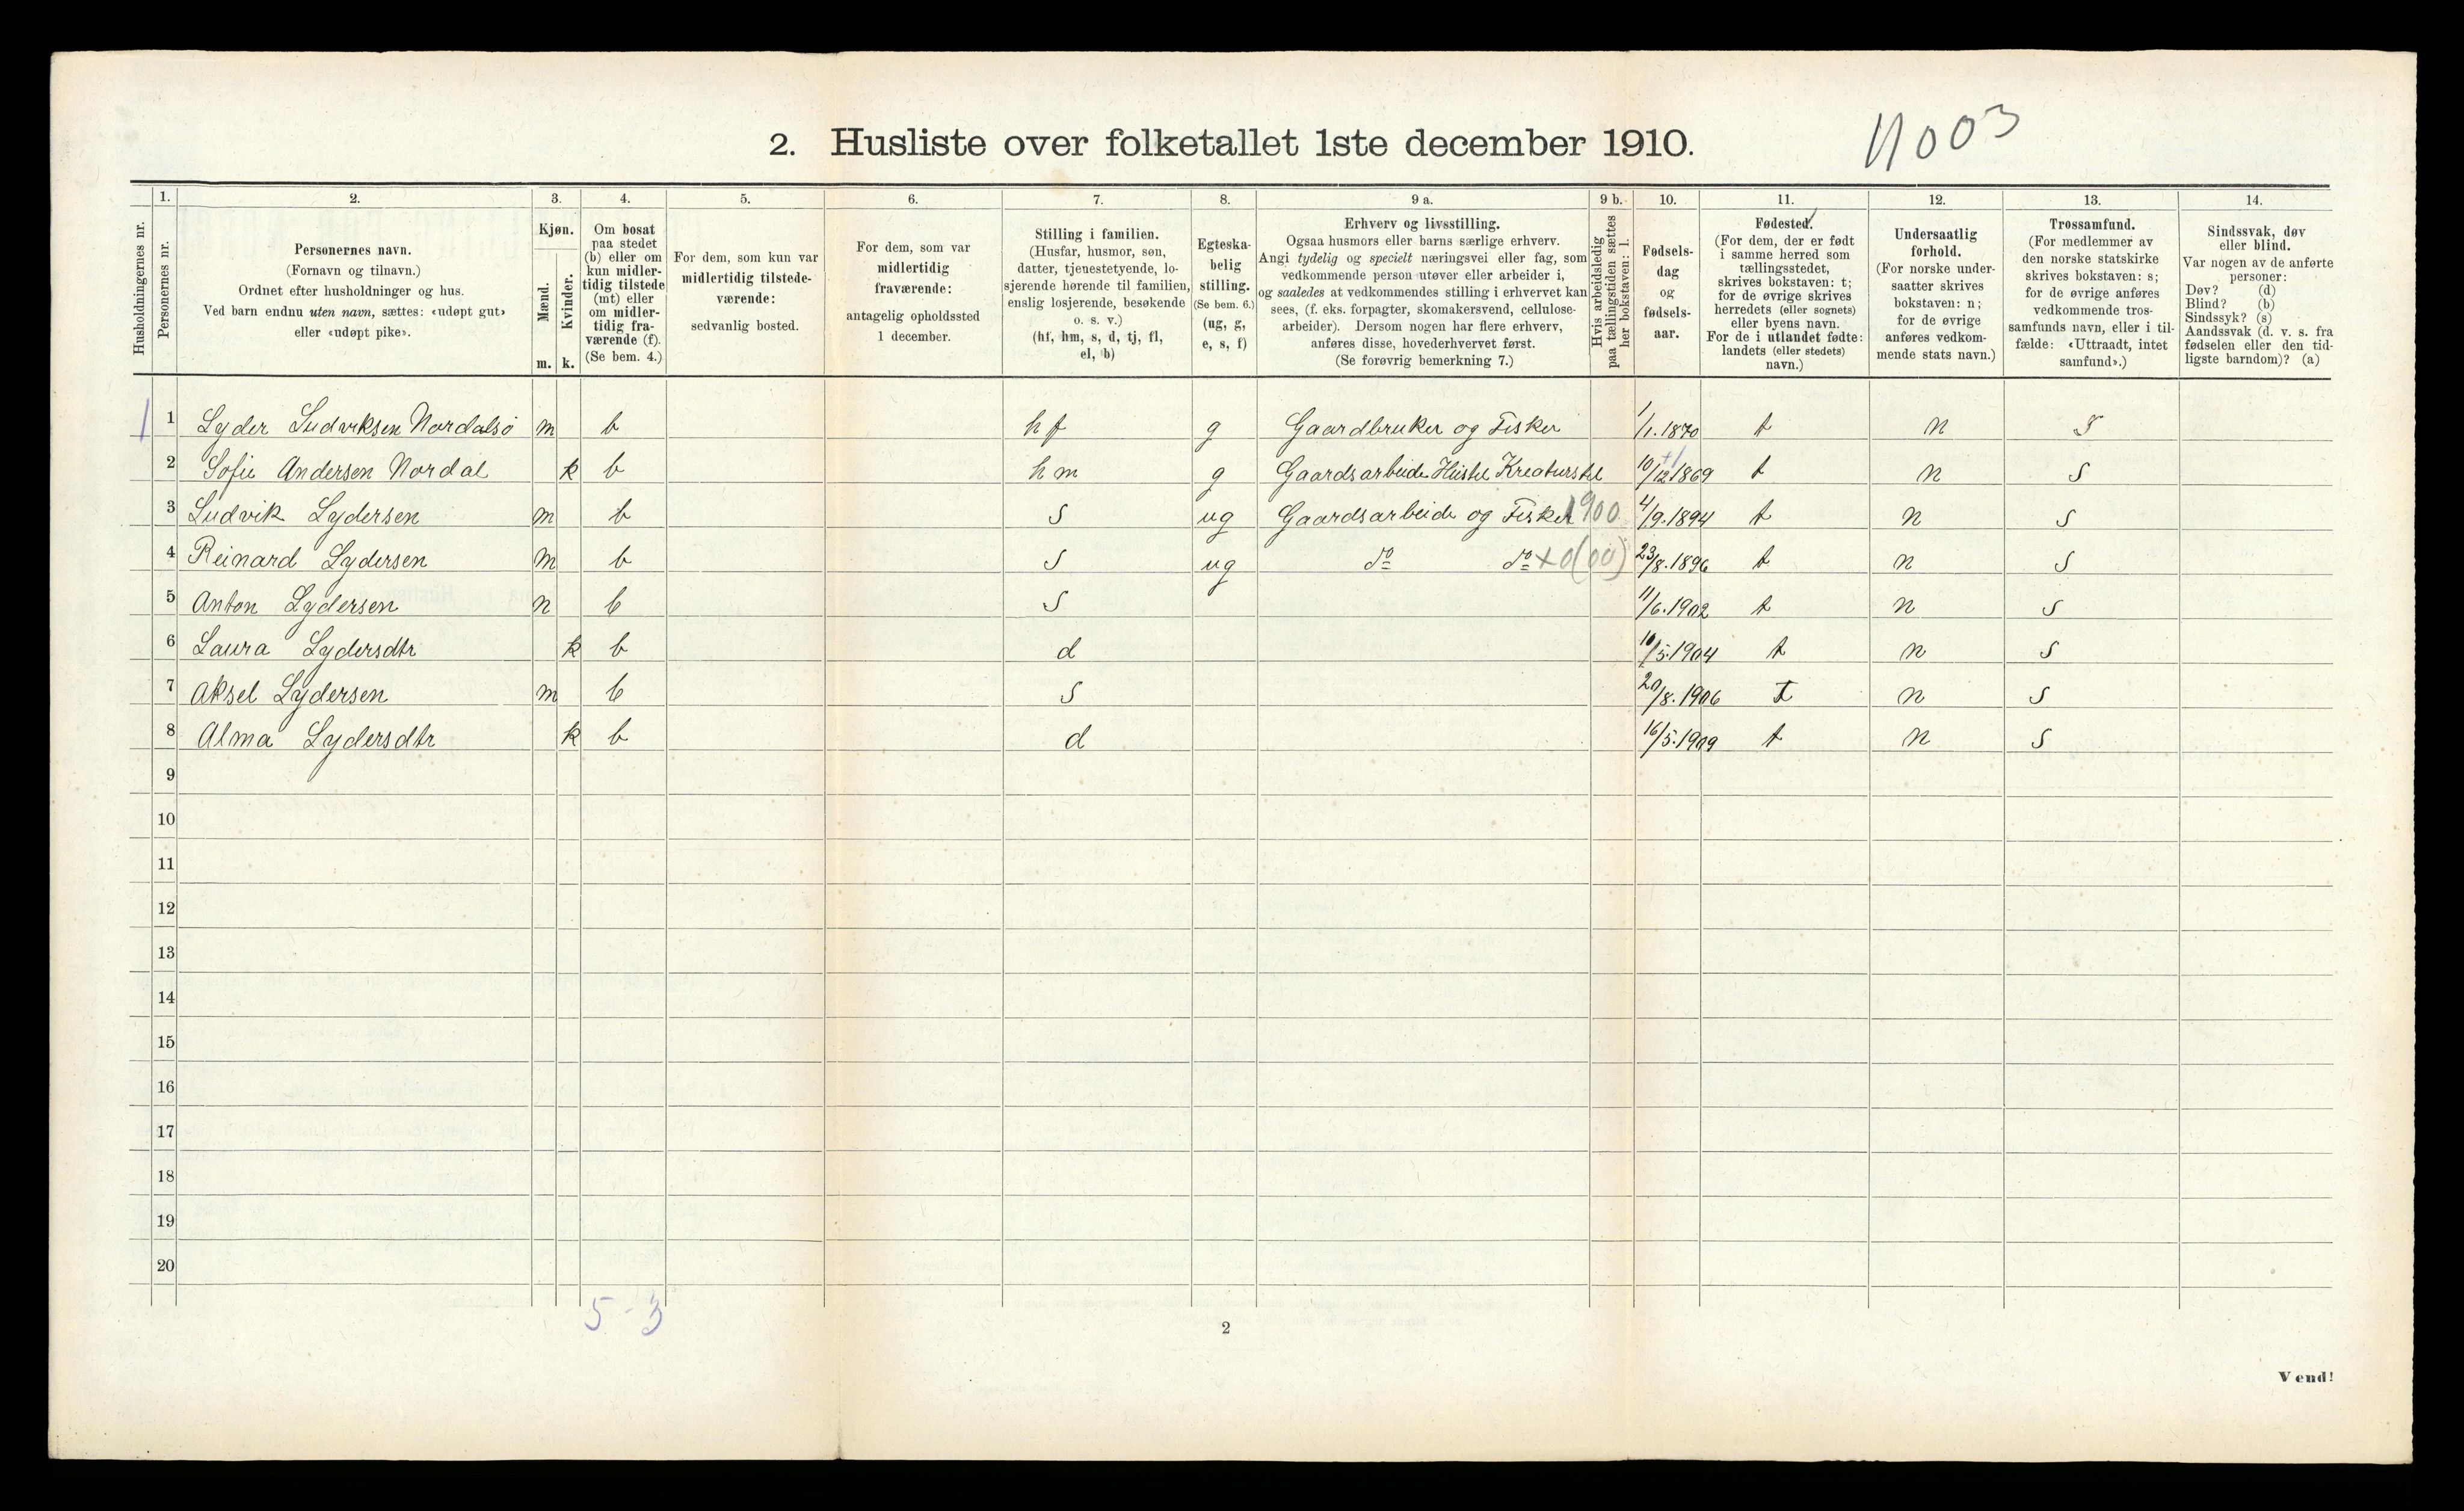 2. Husliste over folketallet 1ste december 1910.
11003
Husholdningernes nr.
1.
Personernes nr.
2.
Personernes navn.
(Fornavn og tilnavn.)
Ordnet efter husholdninger og hus.
Ved barn endnu uten navn, sættes: «udøpt gut»
eller «udøpt pike».
3.
Kjøn.
Mænd.
Kvinder.
m. k.
4.
Om bosat
paa stedet
(b) eller om
kun midler-
tidig tilstede
(mt) eller
om midler-
tidig fra-
værende (f).
(Se bem. 4.)
5.
For dem, som kun var
midlertidig tilstede-
værende:
sedvanlig bosted.
6.
For dem, som var
midlertidig
fraværende:
antagelig opholdssted
1 december.
7.
Stilling i familien.
(Husfar, husmor, søn,
datter, tjenestetyende, lo-
sjerende hørende til familien,
enslig losjerende, besøkende
o. s. v.)
(hf, hm, s, d, tj, fl,
el, b)
8.
Egteska-
belig
stilling.
(Se bem. 6.)
(ug, g,
e, s, f)
9 a.
Erhverv og livsstilling.
Ogsaa husmors eller barns særlige erhverv.
Angi tydelig og specielt næringsvei eller fag, som
vedkommende person utøver eller arbeider i,
og saaledes at vedkommendes stilling i erhvervet kan
sees, (f. eks. forpagter, skomakersvend, cellulose-
arbeider). Dersom nogen har flere erhverv,
anføres disse, hovederhvervet først.
(Se forøvrig bemerkning 7.)
9 b.
Hvis arbeidsledig
paa tællingstiden sættes
her bokstaven: l.
10.
Fødsels-
dag
og
fødsels-
aar.
11.
Fødested.
(For dem, der er født
i samme herred som
tællingsstedet,
skrives bokstaven: t;
for de øvrige skrives
herredets (eller sognets)
eller byens navn.
For de i utlandet fødte:
landets (eller stedets)
navn.)
12.
Undersaatlig
forhold.
(For norske under-
saatter skrives
bokstaven: n;
for de øvrige
anføres vedkom-
mende stats navn.)
13.
Trossamfund.
(For medlemmer av
den norske statskirke
skrives bokstaven: s;
for de øvrige anføres
vedkommende tros-
samfunds navn, eller i til-
fælde: «Uttraadt, intet
samfund».)
14.
Sindssvak, døv
eller blind.
Var nogen av de anførte
personer:
Døv? (d)
Blind? (b)
Sindssyk? (s)
Aandssvak (d. v. s. fra
fødselen eller den tid-
ligste barndom)? (a)
1 1 Lyder Ludviksen Nordalsø m b hf g Gaardbruker og Fisker 1/1.1870 t n S
2 Sofie Andersen Nordal k b hm g Gaardsarbeide Hustel Kreaturstel 10/12 1869 t n S
3 Ludvik Lydersen m b S ug Gaardsarbeide og Fisker 1900 4/9.1894 t n S
4 Reinard Lydersen m b S ug do do +0(00) 23/8.1896 t n S
5 Anton Lydersen n b S 11/6.1902 t n S
6 Laura Lydersdtr k b d 10/5.1904 t n S
7 Aksel Lydersen m b S 20/8.1906 t n S
8 Alma Lydersdtr k b d 16/5.1909 t n S
9
10
11
12
13
14
15
16
17
18
19
20
5-3
2
Vend!